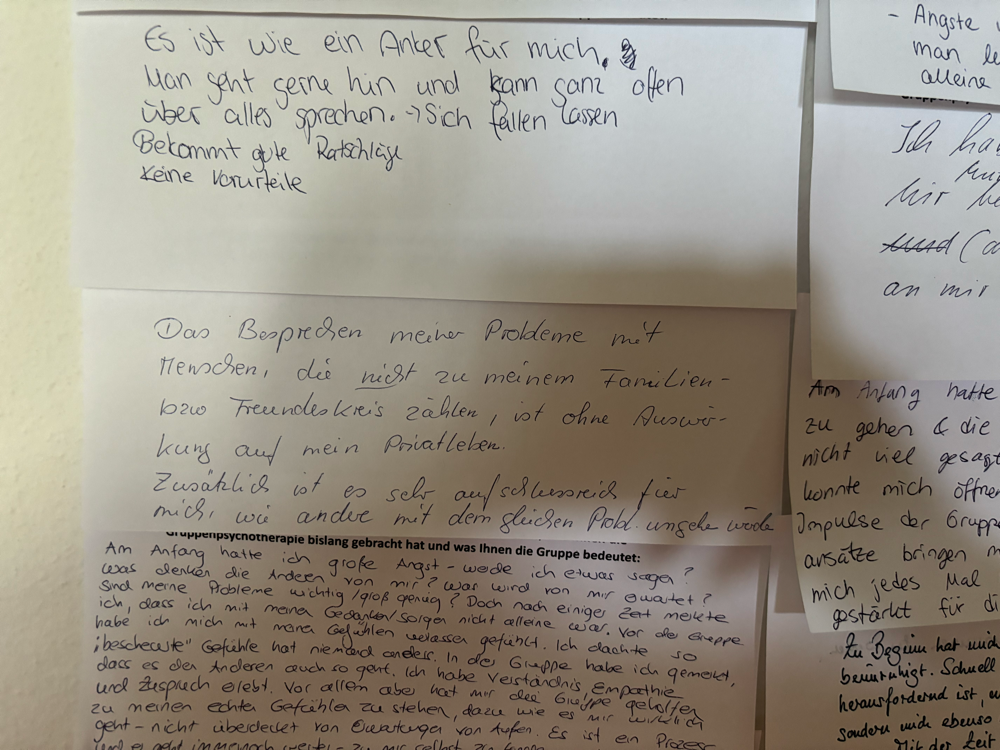 Es ist wie ein Anker für mich.
Man geht gerne hin und kann ganz offen
über alles sprechen. → Sich fallen lassen
Bekommt gute Ratschläge
Keine Vorurteile
Das Besprechen meiner Probleme mit
Menschen, die nicht zu meinem Familien-
bzw Freundeskreis zählen, ist ohne Auswir-
kung auf mein Privatleben.
Zusätzlich ist es sehr aufschlussreich für
mich, wie andre mit dem gleichen Probl. umgehe würde
Gruppenpsychotherapie bislang gebracht hat und was Ihnen die Gruppe bedeutet:
Am Anfang hatte ich große Angst - werde ich etwas sagen?
Was denken die Anderen von mir? Was wird von mir erwartet?
Sind meine Probleme wichtig/groß genug? Doch nach einiger Zeit merkte
ich, dass ich mit meinen Gedanken/Sorgen nicht alleine war. Vor der Gruppe
habe ich mich mit meinen Gefühlen verlassen gefühlt. Ich dachte so
"bescheuerte" Gefühle hat niemand anders. In der Gruppe habe ich gemerkt,
dass es den Anderen auch so geht. Ich habe Verständnis, Empathie
und Zuspruch erlebt. Vor allem aber hat mir die Gruppe geholfen
zu meinen echten Gefühlen zu stehen, dazu wie es mir wirklich
geht - nicht überdeckt von Erwartungen von Außen. Es ist ein Prozess
und es geht immernoch weiter - zu mir selbst
- Ängste
man
alleine
Ich
Mir
und
an mir
Am Anfang hatte
zu gehen & die
nicht viel gesagt
konnte mich öffnen
Impulse der Gruppe
ansätze bringen
mich jedes Mal
gestärkt für
Zu Beginn hat mich
beunruhigt. Schnell
herausfordernd ist,
sondern mich ebenso
Mit der Zeit